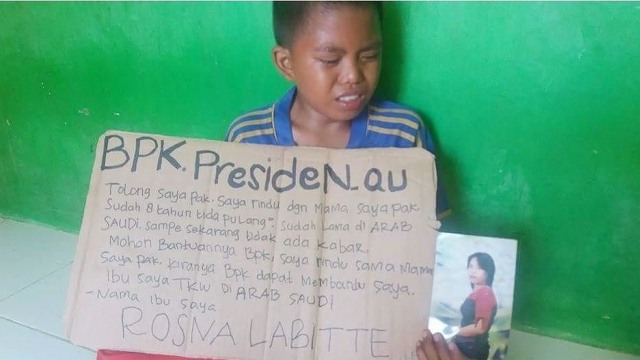 BPK. PresideN_ku
Tolong saya pak. saya rindu dgn Mama saya pak
Sudah 8 tahun tida pulang". sudah Lama di ARAB
SAUDI. sampe sekarang tidak ada kabar.
Mohon Bantuannya Bpk, saya rindu sama Mama
saya pak. kiranya Bpk dapat Membantu saya.
Ibu saya TKW DI ARAB SAUDI
-Nama ibu saya
ROSNA LABITTE